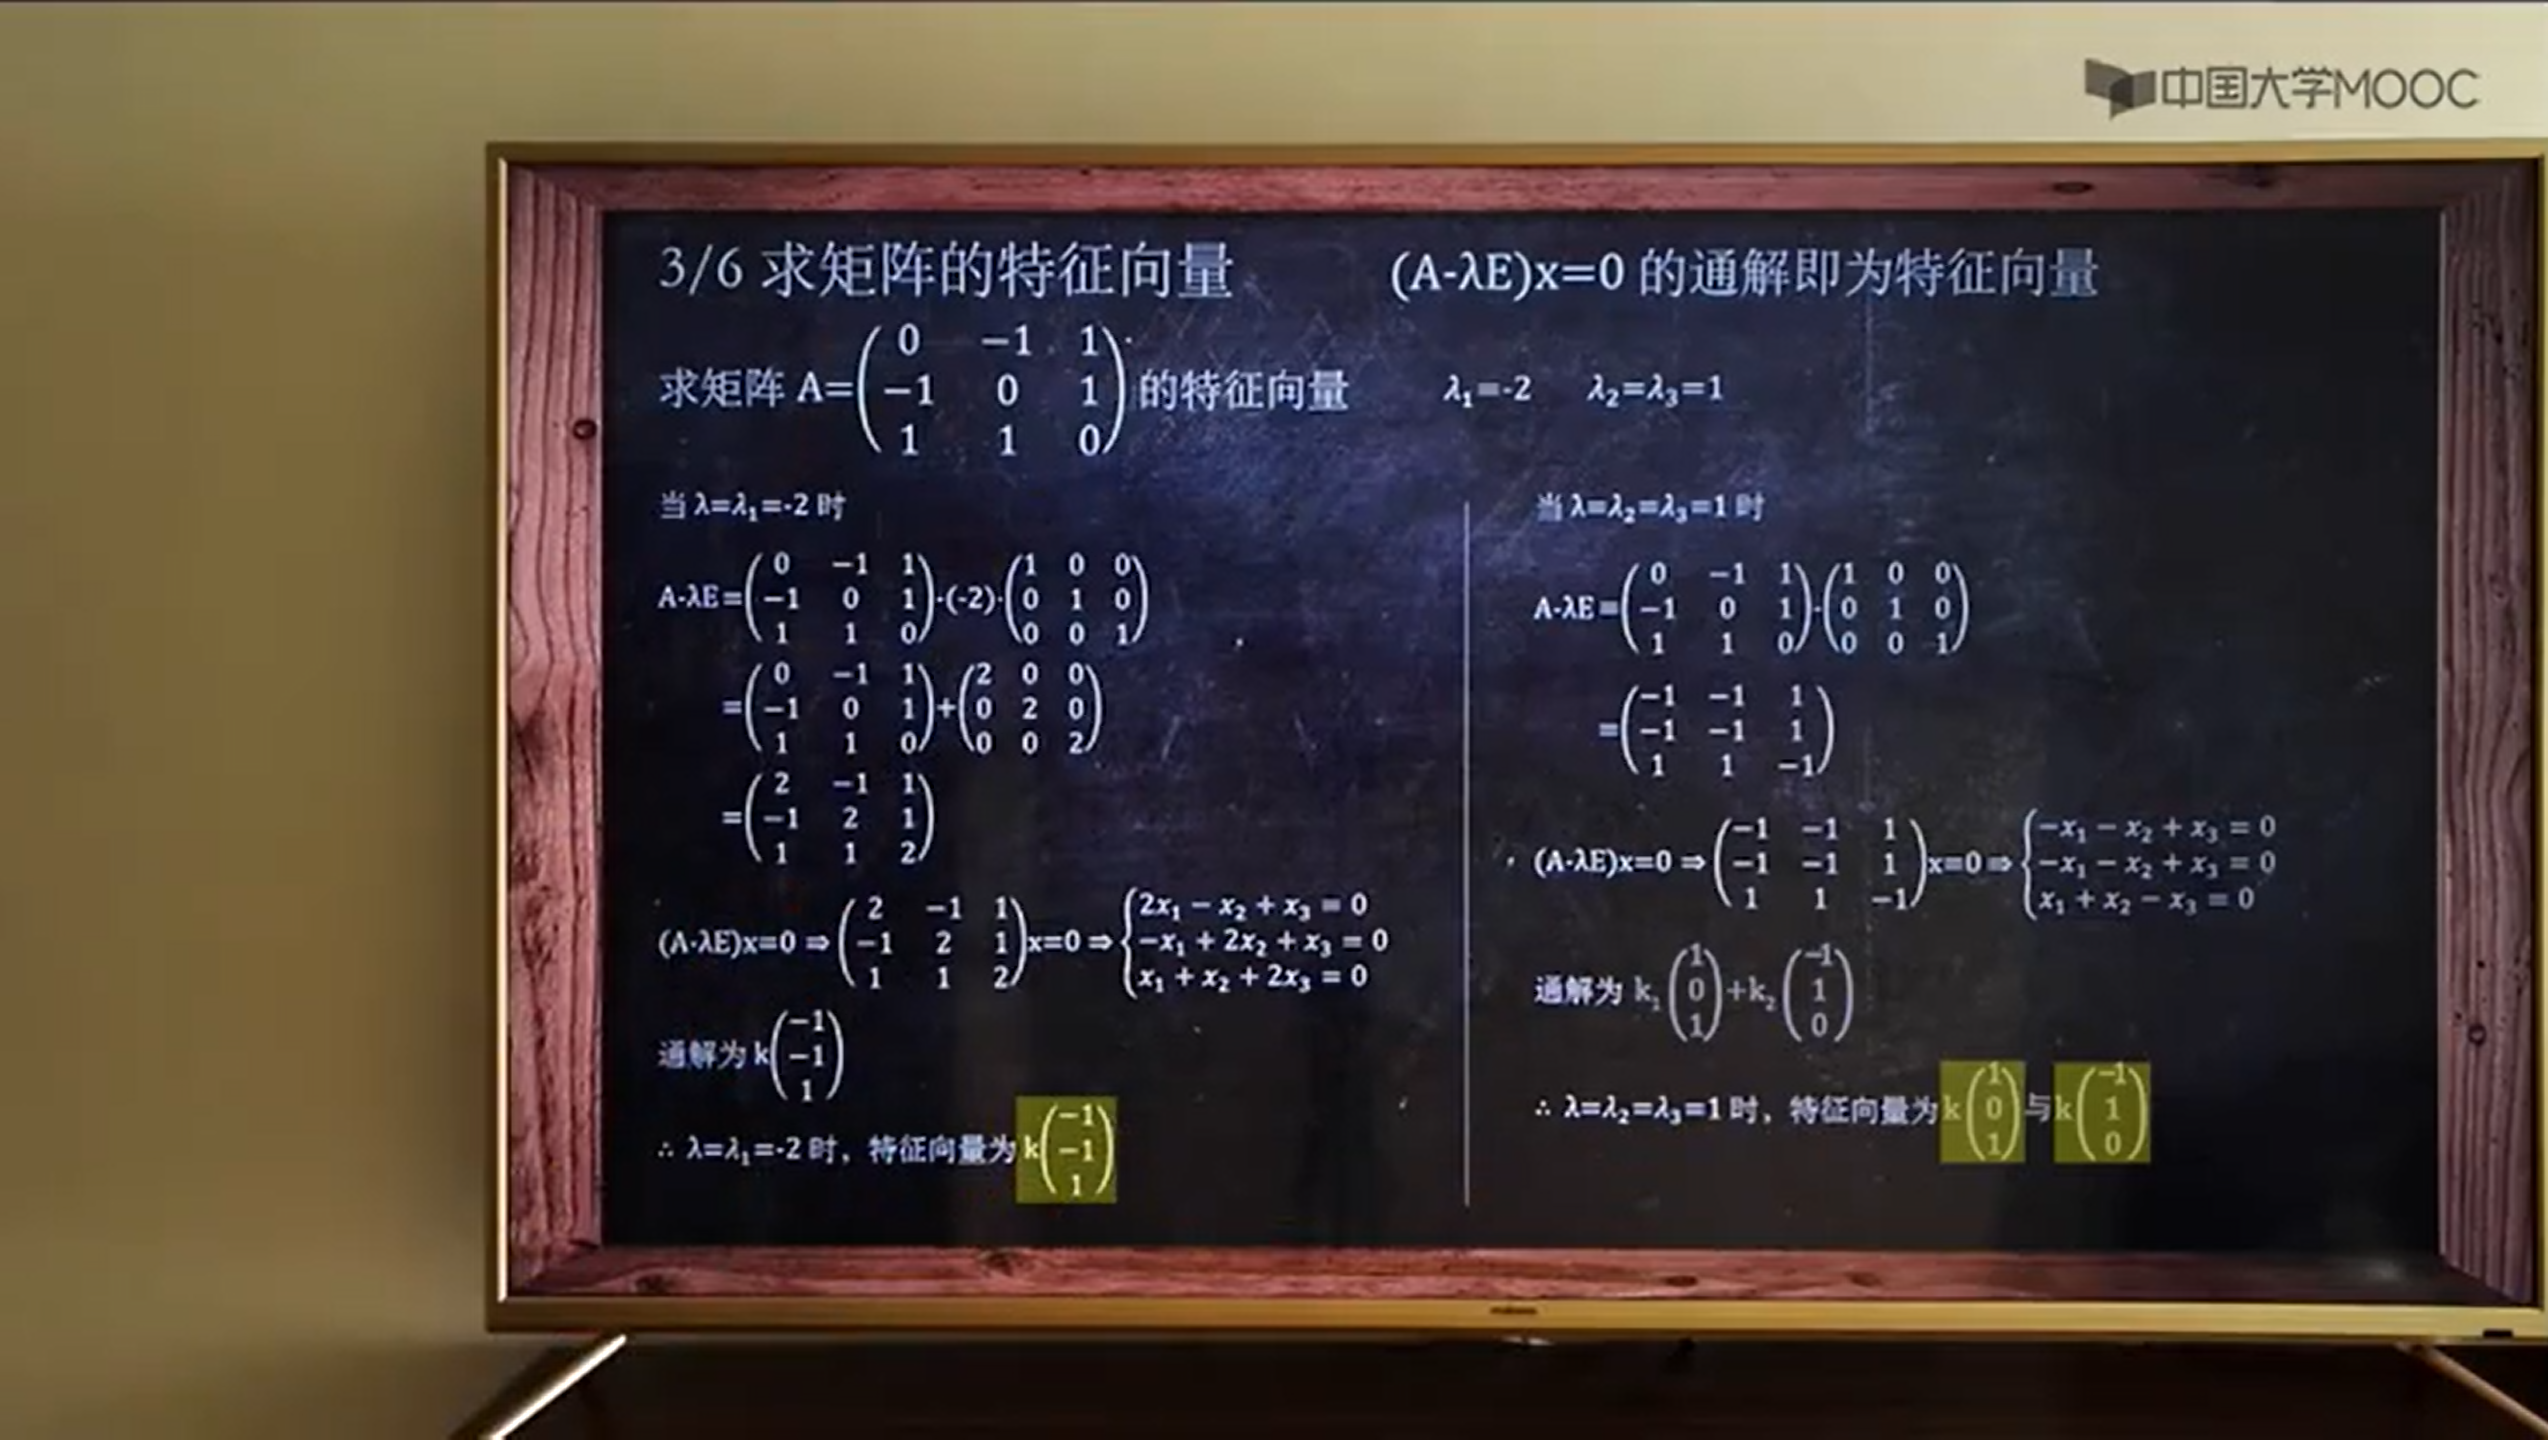 中国大学MOOC
3/6 求矩阵的特征向量
(A-λE)x=0 的通解即为特征向量
求矩阵 A=(0 −1 1; −1 0 1; 1 1 0)的特征向量
λ₁=-2 λ₂=λ₃=1
当 λ=λ₁=-2 时
A-λE=(0 −1 1; −1 0 1; 1 1 0)-(-2)·(1 0 0; 0 1 0; 0 0 1)
=(0 −1 1; −1 0 1; 1 1 0)+(2 0 0; 0 2 0; 0 0 2)
=(2 −1 1; −1 2 1; 1 1 2)
(A-λE)x=0 ⇒(2 −1 1; −1 2 1; 1 1 2)x=0 ⇒{2x₁ − x₂ + x₃ = 0; −x₁ + 2x₂ + x₃ = 0; x₁ + x₂ + 2x₃ = 0
通解为 k(−1; −1; 1)
∴ λ=λ₁=-2 时，特征向量为 k(−1; −1; 1)
当 λ=λ₂=λ₃=1 时
A-λE=(0 −1 1; −1 0 1; 1 1 0)-(1 0 0; 0 1 0; 0 0 1)
=(−1 −1 1; −1 −1 1; 1 1 −1)
(A-λE)x=0 ⇒(−1 −1 1; −1 −1 1; 1 1 −1)x=0 ⇒{−x₁ − x₂ + x₃ = 0; −x₁ − x₂ + x₃ = 0; x₁ + x₂ − x₃ = 0
通解为 k₁(1; 0; 1)+k₂(−1; 1; 0)
∴ λ=λ₂=λ₃=1 时，特征向量为 k(1; 0; 1)与k(−1; 1; 0)